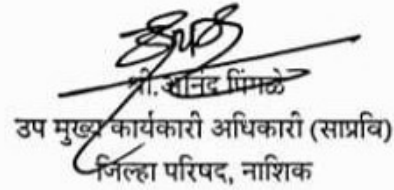 श्री. आनंद पिंगळे
उप मुख्य कार्यकारी अधिकारी (साप्रवि)
जिल्हा परिषद, नाशिक